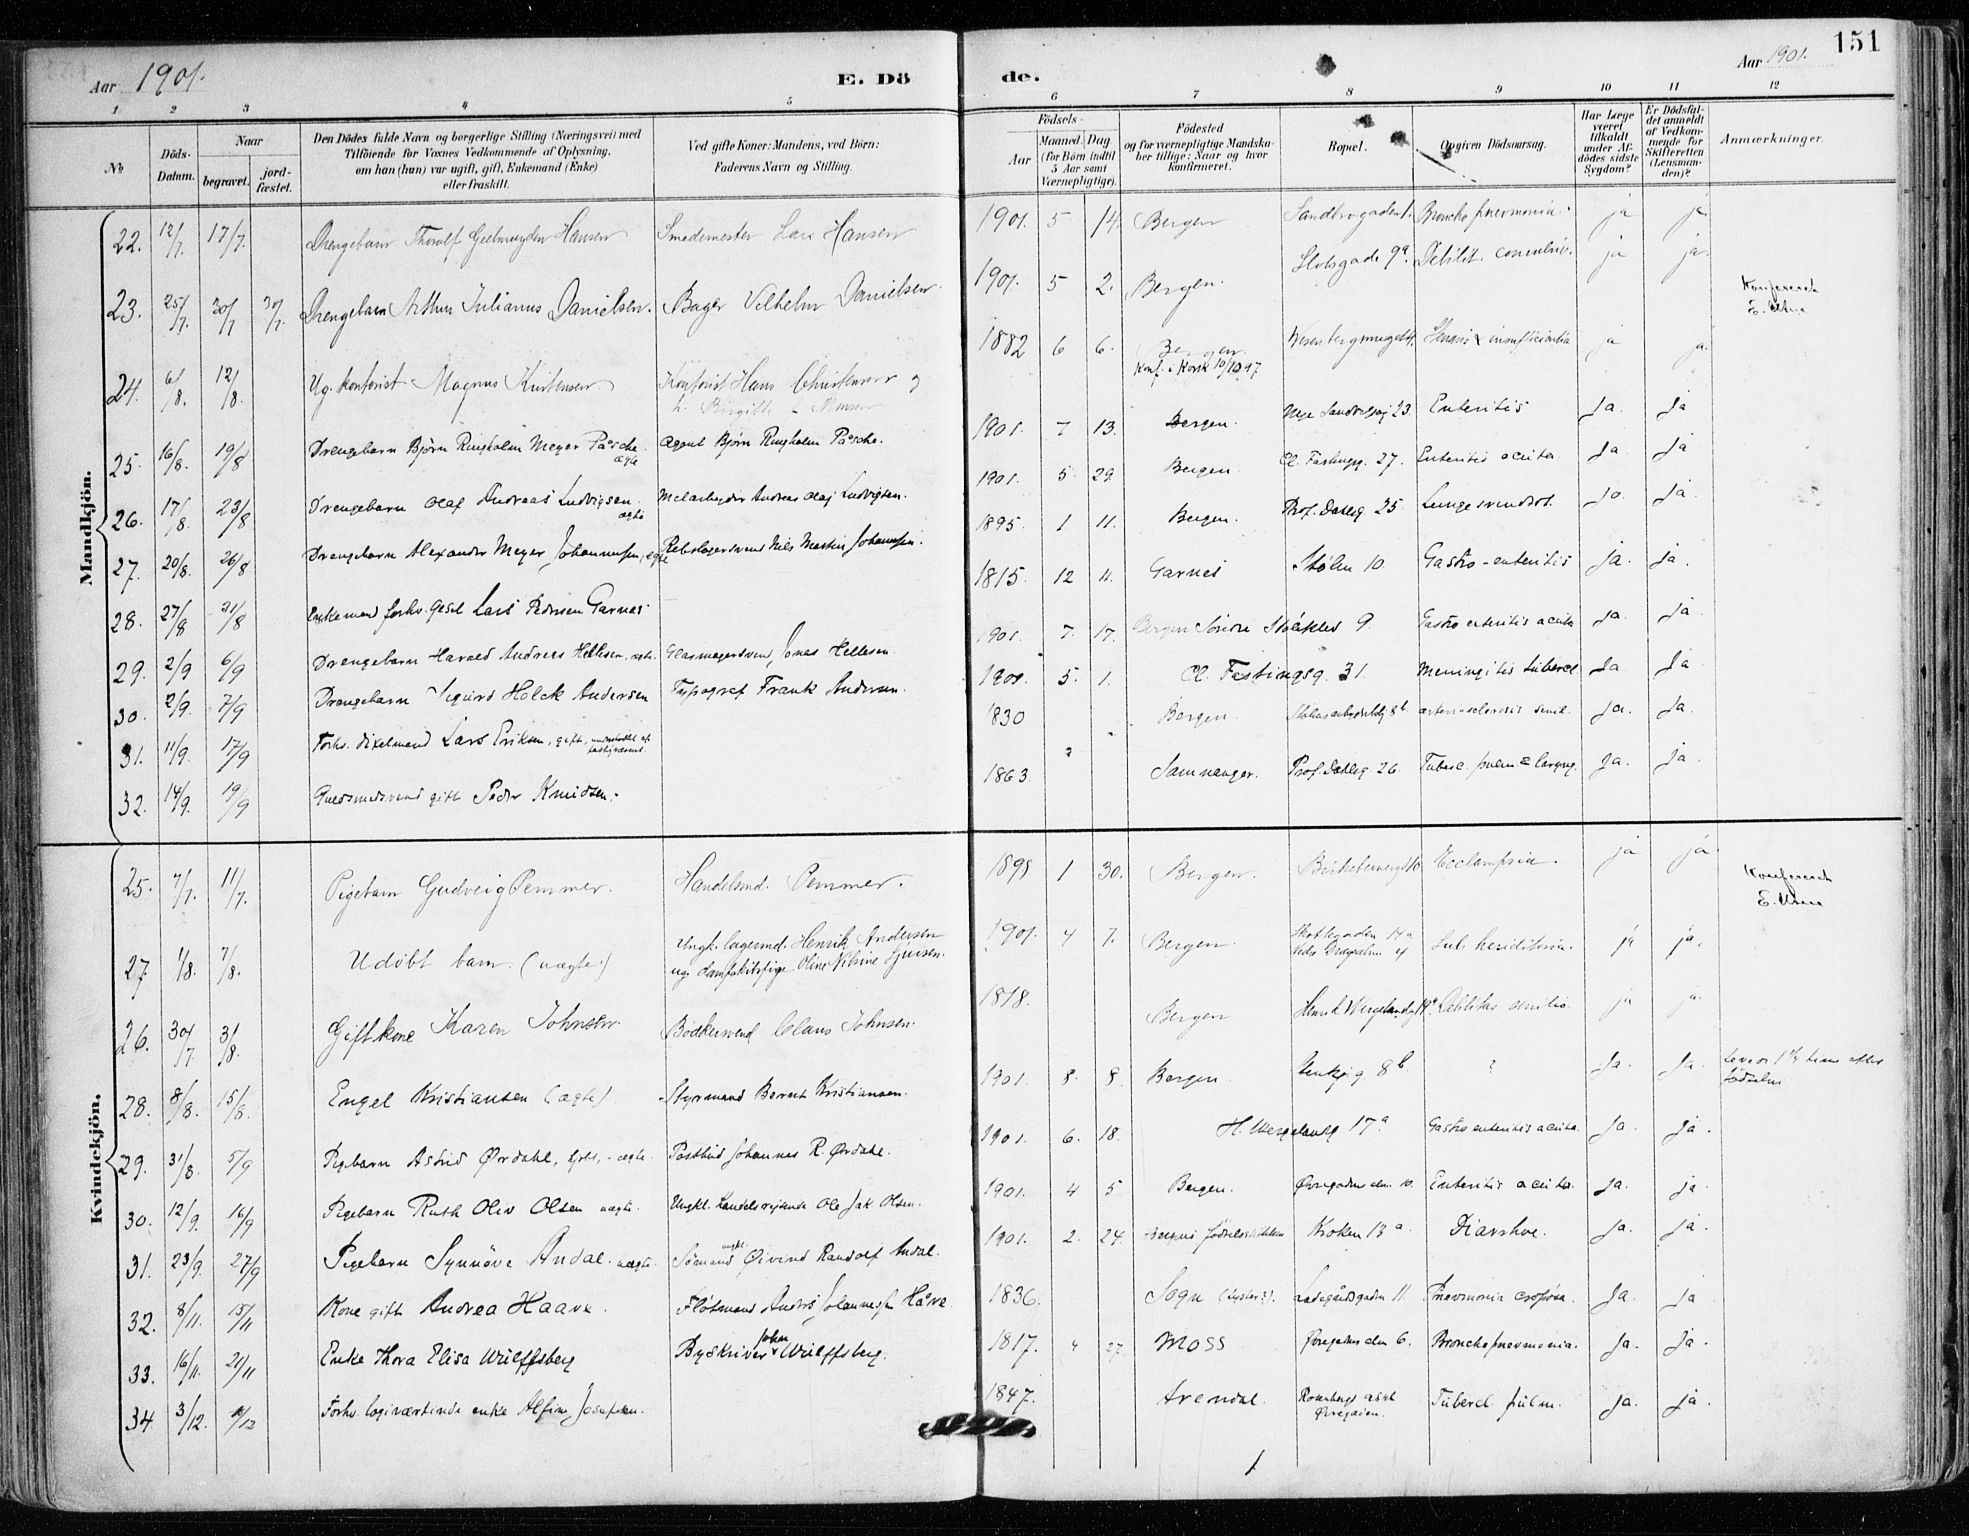 151
Aar 1901.
E. Dö
de.
Aar 1901.
1 2 3 4 5 6 7 8 9 10 11 12
No
Döds-Datum.
Naar
begravet.
jord-fæstet.
Den Dödes fulde Navn og borgerlige Stilling (Næringsvei) med
Tilföiende for Voxnes Vedkommende af Oplysning,
om han (hun) var ugift, gift, Enkemand (Enke)
eller fraskilt.
Ved gifte Koner: Mandens, ved Börn:
Faderens Navn og Stilling.
Födsels-
Aar
Maaned. Dag
(for Börn indtil
5 Aar samt
Værnepligtige).
Födested
og for værnepligtige Mandska-
ber tillige: Naar og hvor
konfirmeret.
Bopæl.
Opgiven Dödsaarsag.
Har Læge
været
tilkaldt
under Af-
dödes sidste
Sygdom?
Er Dödsfal-
det anmeldt
af Vedkom-
mende for
Skifteretten
(Lensman-
den)?
Anmærkninger.
Mandkjön.
22. 12/7. 17/7. Drengebarn Thorolf Geelmuyden Hansen Smedemester Lars Hansen 1901. 5 14. Bergen Sandbrogaden 1. Broncho pneumonia. ja ja
23. 25/7. 30/7 30/7. Drengebarn Arthur Julianus Danielsen. Bager Vilhelm Danielsen. 1901. 5 2. Bergen. Slotsgade 9a. Debilit. convulsiv. ja ja.
Konfereret
E. Utne
24. 6/8. 12/8. Ug. kontorist Magnus Kristensen Kontorist Hans Christensen og
h. Birgitte 1882 6 6. Bergen. ja ja.
Konf. i Korsk
25. 16/8. 19/8 Drengebarn Bjørn Ringholm Meyer Påsche ægte Agent Bjørn Ringholm Påsche. 1901. 7 13. Bergen. Nye Sandviksvej 23. Enteritis Ja. Ja
26. 17/8. 23/8 Drengebarn Olaf Andreas Ludvigsen ægte Andreas Olaj Ludvigsen. 1901. 5. 29 Bergen. Cl. Fastingsg. 27. Enteritis acuta Ja. Ja
27. 20/8. 26/8 Drengebarn Alexander Meyer Johannesen, ægte Rebslagersvend Nils Martin Johannesen. 1895. 1 11. Bergen. Prof. Dahlsg. 25 Lungesvindsot. Ja. Ja.
28. 27/8 31/8 Enkemand forhv. Lars Pedersen Garnes 1815. 12 11. Garnes Stølen 10. Gastro-enteritis ja. ja.
29. 2/9 6/9 Drengebarn Harald Andreas Hellesen, ægte. Glasmagersvend Jonas Hellesen. 1901. 7. 17. Bergen Søndre 9. Gastro enteritis acuta Ja. Ja
30. 2/9. 7/9 Drengebarn Sigurd Holck Andersen Typograf Frank Andersen. 1901. 5. 1. Cl. Fastingsg. 31. Meningitis tubercl Ja Ja
31. 11/9. 17/9 Forhv. Lars Eriksen, gift, understøttet af
fattigvæsenet. 1830 Bergen. arteriosclerosis senil. Ja. Ja.
32. 14/9. 19/9 Guldsmedsvend gift Peder Knudsen. 1863 Samnanger. Prof. Dahlsg. 26. Ja. Ja.
Kvindekjön.
25. 7/7. 11/7. Pigebarn Gudveig Pemmer. Handelsmd. Pemmer. 1899 1 30. Bergen. Ecclampsia. ja ja.
Konfereret
E. Utne
27. 1/8. 7/8. Udøbt barn. (uægte.) Ungk. lagermd. Henrik Andersen
ug. 1901. 4 7. Bergen. ja ja.
26. 30/7. 3/8. Gift kone Karen Johnsen. Bødkersvend Claus Johnsen. 1818. Bergen Henrik Wergelandsg 19a. Debilitas senilis ja ja.
28. 8/8. 15/8. Engel Kristiansen (ægte) Styrmand Bernt Kristiansen. 1901. 8. 8. Bergen 8b. ? Ja. Ja. Levede 1 1/4 time efter
fødselen
29. 31/8. 5/9 Pigebarn Astrid Ørdahl, - ægte. Postbud Johannes R. Ørdahl. 1901. 6. 18. H. Wergelandsg 17a Gastro enteritis acuta. Ja. Ja.
30. 12/9. 16/9 Pigebarn Ruth Oliv Olsen uægte. Ungkl. handelsrejsende Ole Jak Olsen. 1901. 4 5. Bergen. Øvregaden 10. Enteritis acuta. Ja. ja
31. 23/9. 27/9 Pigebarn Synnøve Andal. uægte. Sømand ungkl. Øivind Randolf Andal. 1901. 2. 24. Bergens fødselsstiftelse Kroken 13a. Diarrhoe. Ja. ja
32. 8/11. 13/11 Kone gift Andrea Haave. Fløtmand Anders Johannesen Håve. 1836. Sogn (Lyster?). Ladegårdsgaden 11 Pneumonia crouposa. Ja. ja
33. 16/11. 21/11 Enke Thora Elisa Wulffsberg Byskriver John Wulffsberg. 1817. 4 27. Moss Øvregaden 6. Bronchopneumonia. Ja. Ja.
34. 3/12. Forhv. logiværtinde enke Alfine Josefsen. 1847. Arendal. Rosenbergs asyl
Øvregaden. Tubercl. pulm. Ja. ja.